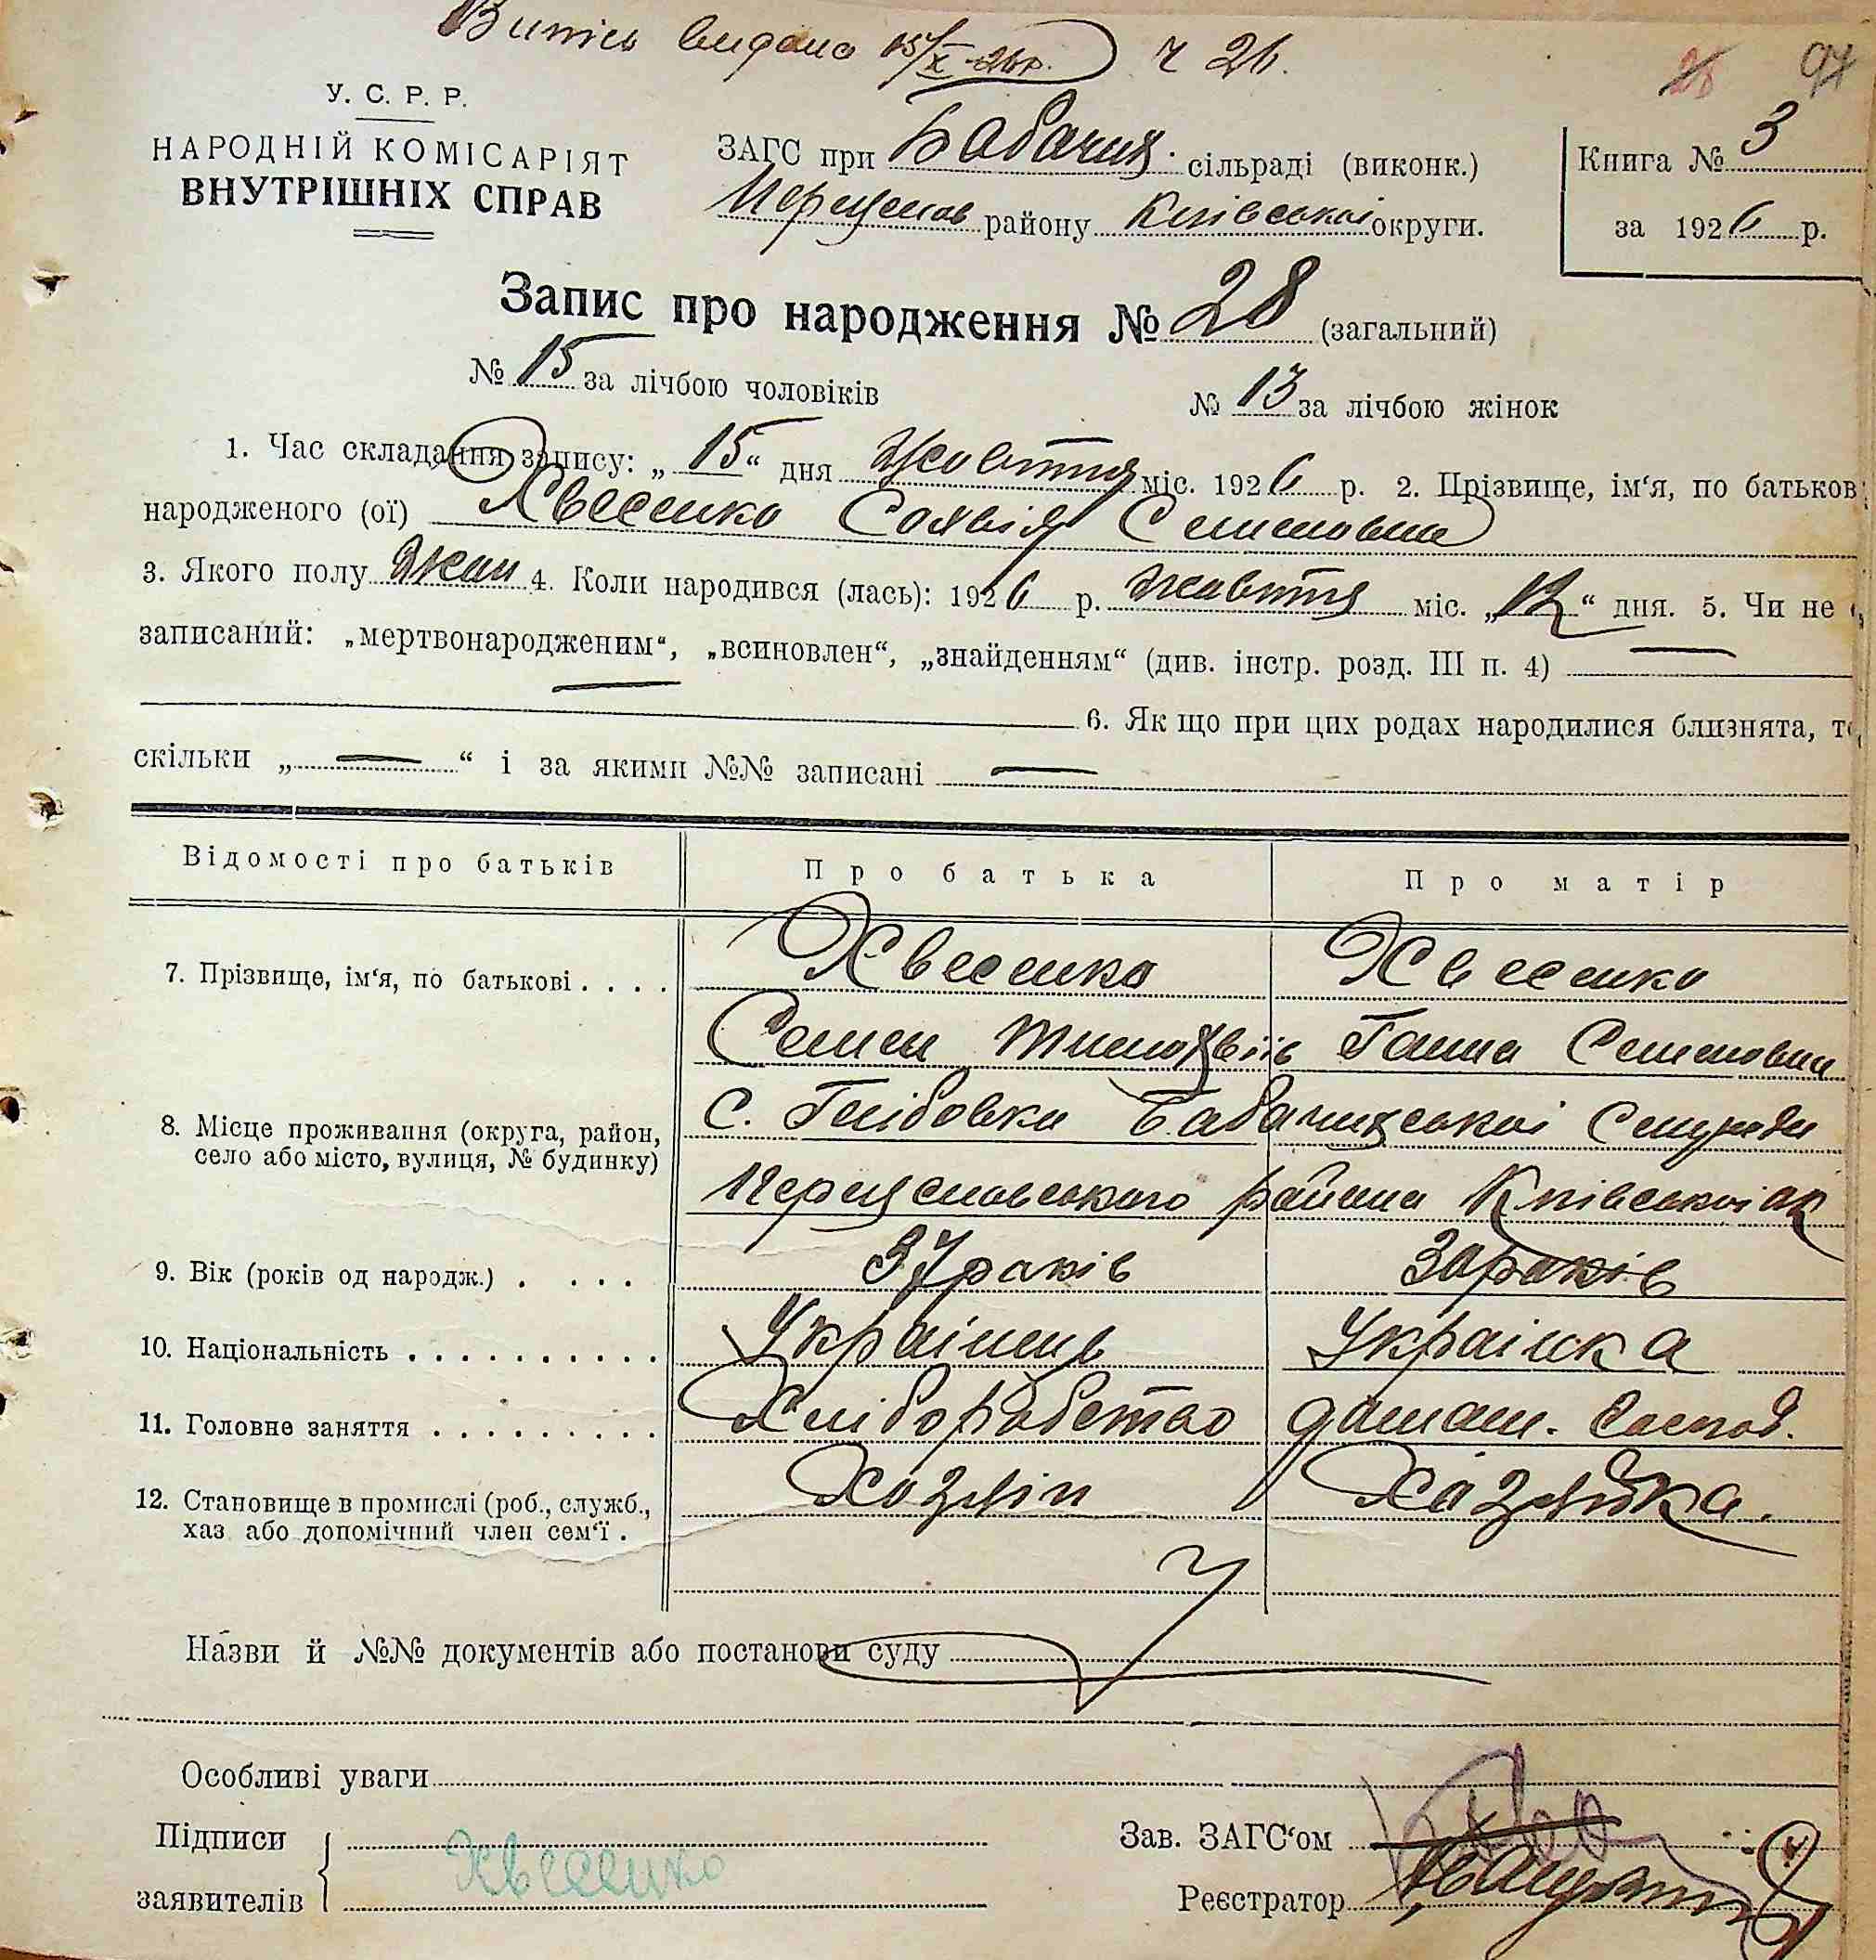 Витяг видано 15/X 26 р. ч 26.
28 94
У. С. Р. Р.
НАРОДНІЙ КОМІСАРІЯТ
ВНУТРІШНІХ СПРАВ
ЗАГС при Бабачиц. сільраді (виконк.)
району Київської округи.
Книга № 3
за 1926 р.
Запис про народження № 28 (загальний)
№ 15 за лічбою чоловіків № 13 за лічбою жінок
1. Час складання запису: „15“ дня Жовтня міс. 1926 р. 2. Прізвище, ім‘я, по батьков
народженого (ої) Хвесенко Сохвія Семеновна
3. Якого полу жен 4. Коли народився (лась): 1926 р. жовтня міс. „12“ дня. 5. Чи не
записаний: „мертвонародженим“, „всиновлен“, „знайденням“ (див. інстр. розд. III п. 4) —
— 6. Як що при цих родах народилися близнята, то
скільки „—“ і за якими №№ записані —
Відомості про батьків Про батька Про матір
7. Прізвище, ім‘я, по батькові . . . . Хвесенко Хвесенко
Семен Тимохвіїв Ганна Семеновна
8. Місце проживання (округа, район,
село або місто, вулиця, № будинку)
с. Глібовка Бабачицської Сельради
району Київської ок
9. Вік (років од народж.) . . . . 37 років 30 років
10. Національність . . . . . . . . . . Українець Українка
11. Головне заняття . . . . . . . . . Хліборобство домаш. Господ.
12. Становище в промислі (роб., служб.,
хаз або допомічний член сем‘ї . Хозяін Хазяйка.
Назви й №№ документів або постанови суду
Особливі уваги
Підписи
заявителів
Хвесенко
Зав. ЗАГС‘ом
Реєстратор